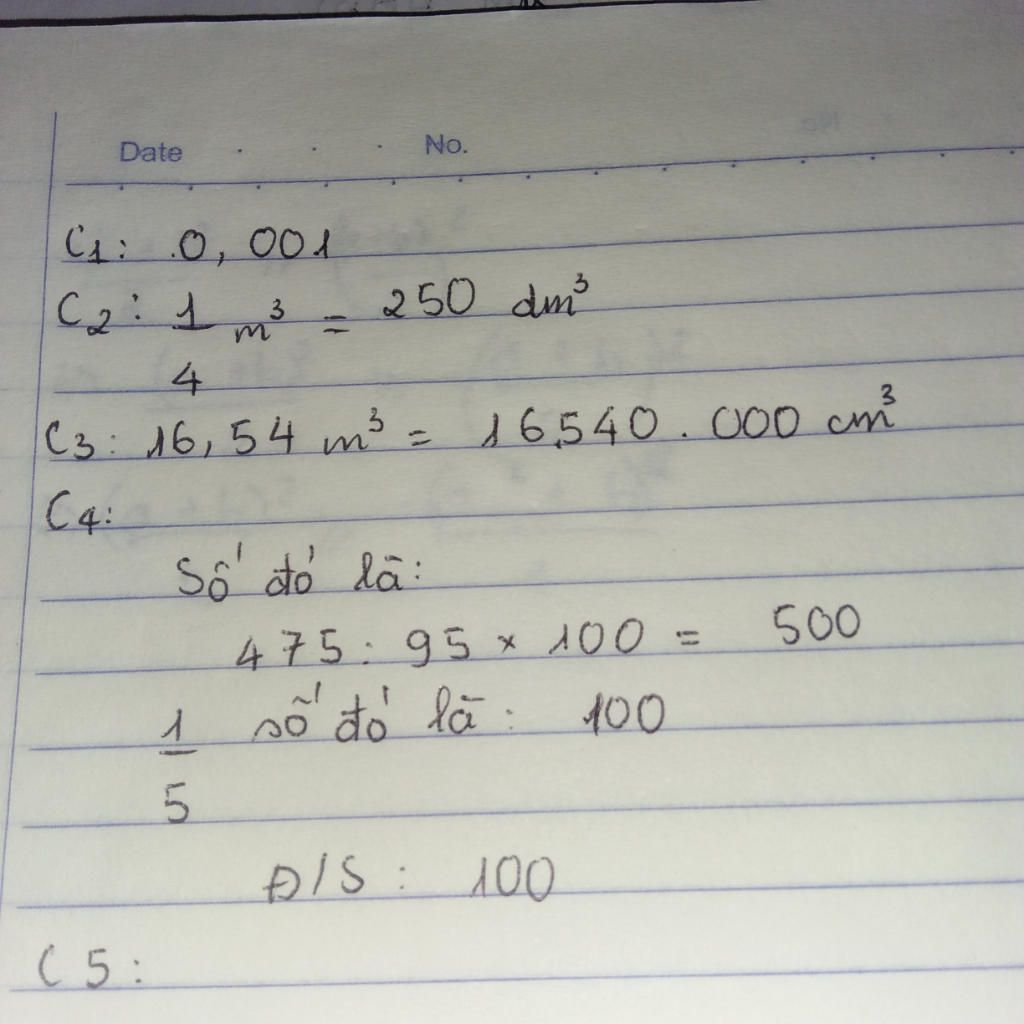 Date No.
C1: 0,001
C2: 1/4 m³ = 250 dm³
C3: 16,54 m³ = 16.540.000 cm³
C4:
Số đó là:
475 : 95 × 100 = 500
1/5 số đó là: 100
Đ/S: 100
C5: